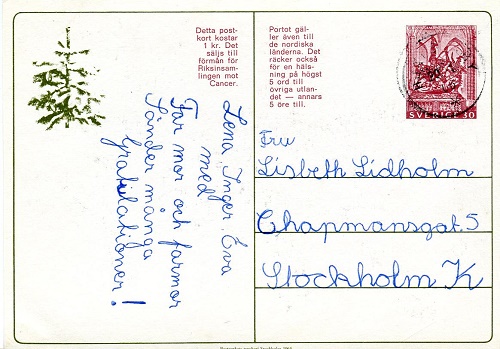 Detta post-
kort kostar
1 kr. Det
säljs till
förmån för
Riksinsam-
lingen mot
Cancer.
Portot gäl-
ler även till
de nordiska
länderna. Det
räcker också
för en häls-
ning på högst
5 ord till
övriga utlan-
det — annars
5 öre till.
SVERIGE 30
Lena, Inger, Eva
med
Far mor och farmor
Sänder många
Gratulationer!
Fru
Lisbeth Lidholm
Chapmansgat. 5
Stockholm K